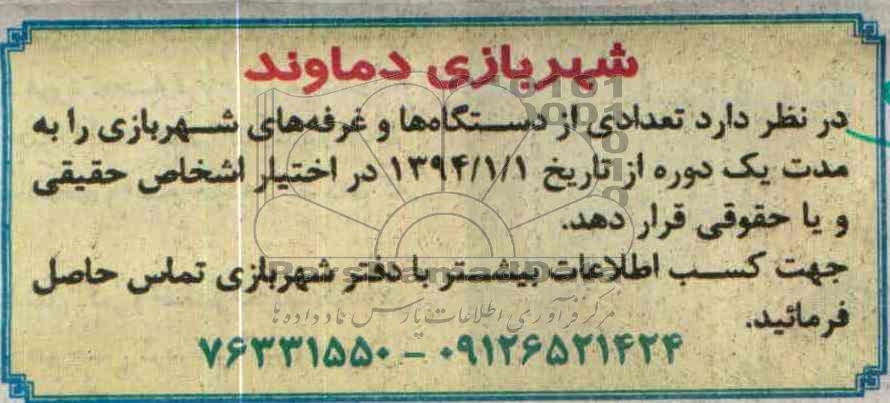 شهربازی دماوند
در نظر دارد تعدادی از دستگاه‌ها و غرفه‌های شهربازی را به
مدت یک دوره از تاریخ ۱۳۹۴/۱/۱ در اختیار اشخاص حقیقی
و یا حقوقی قرار دهد.
جهت کسب اطلاعات بیشتر با دفتر شهربازی تماس حاصل
فرمائید.
مرکز فرآوری اطلاعات پارس نماد داده ها
۰۹۱۲۶۵۲۱۴۲۴ – ۷۶۳۳۱۵۵۰